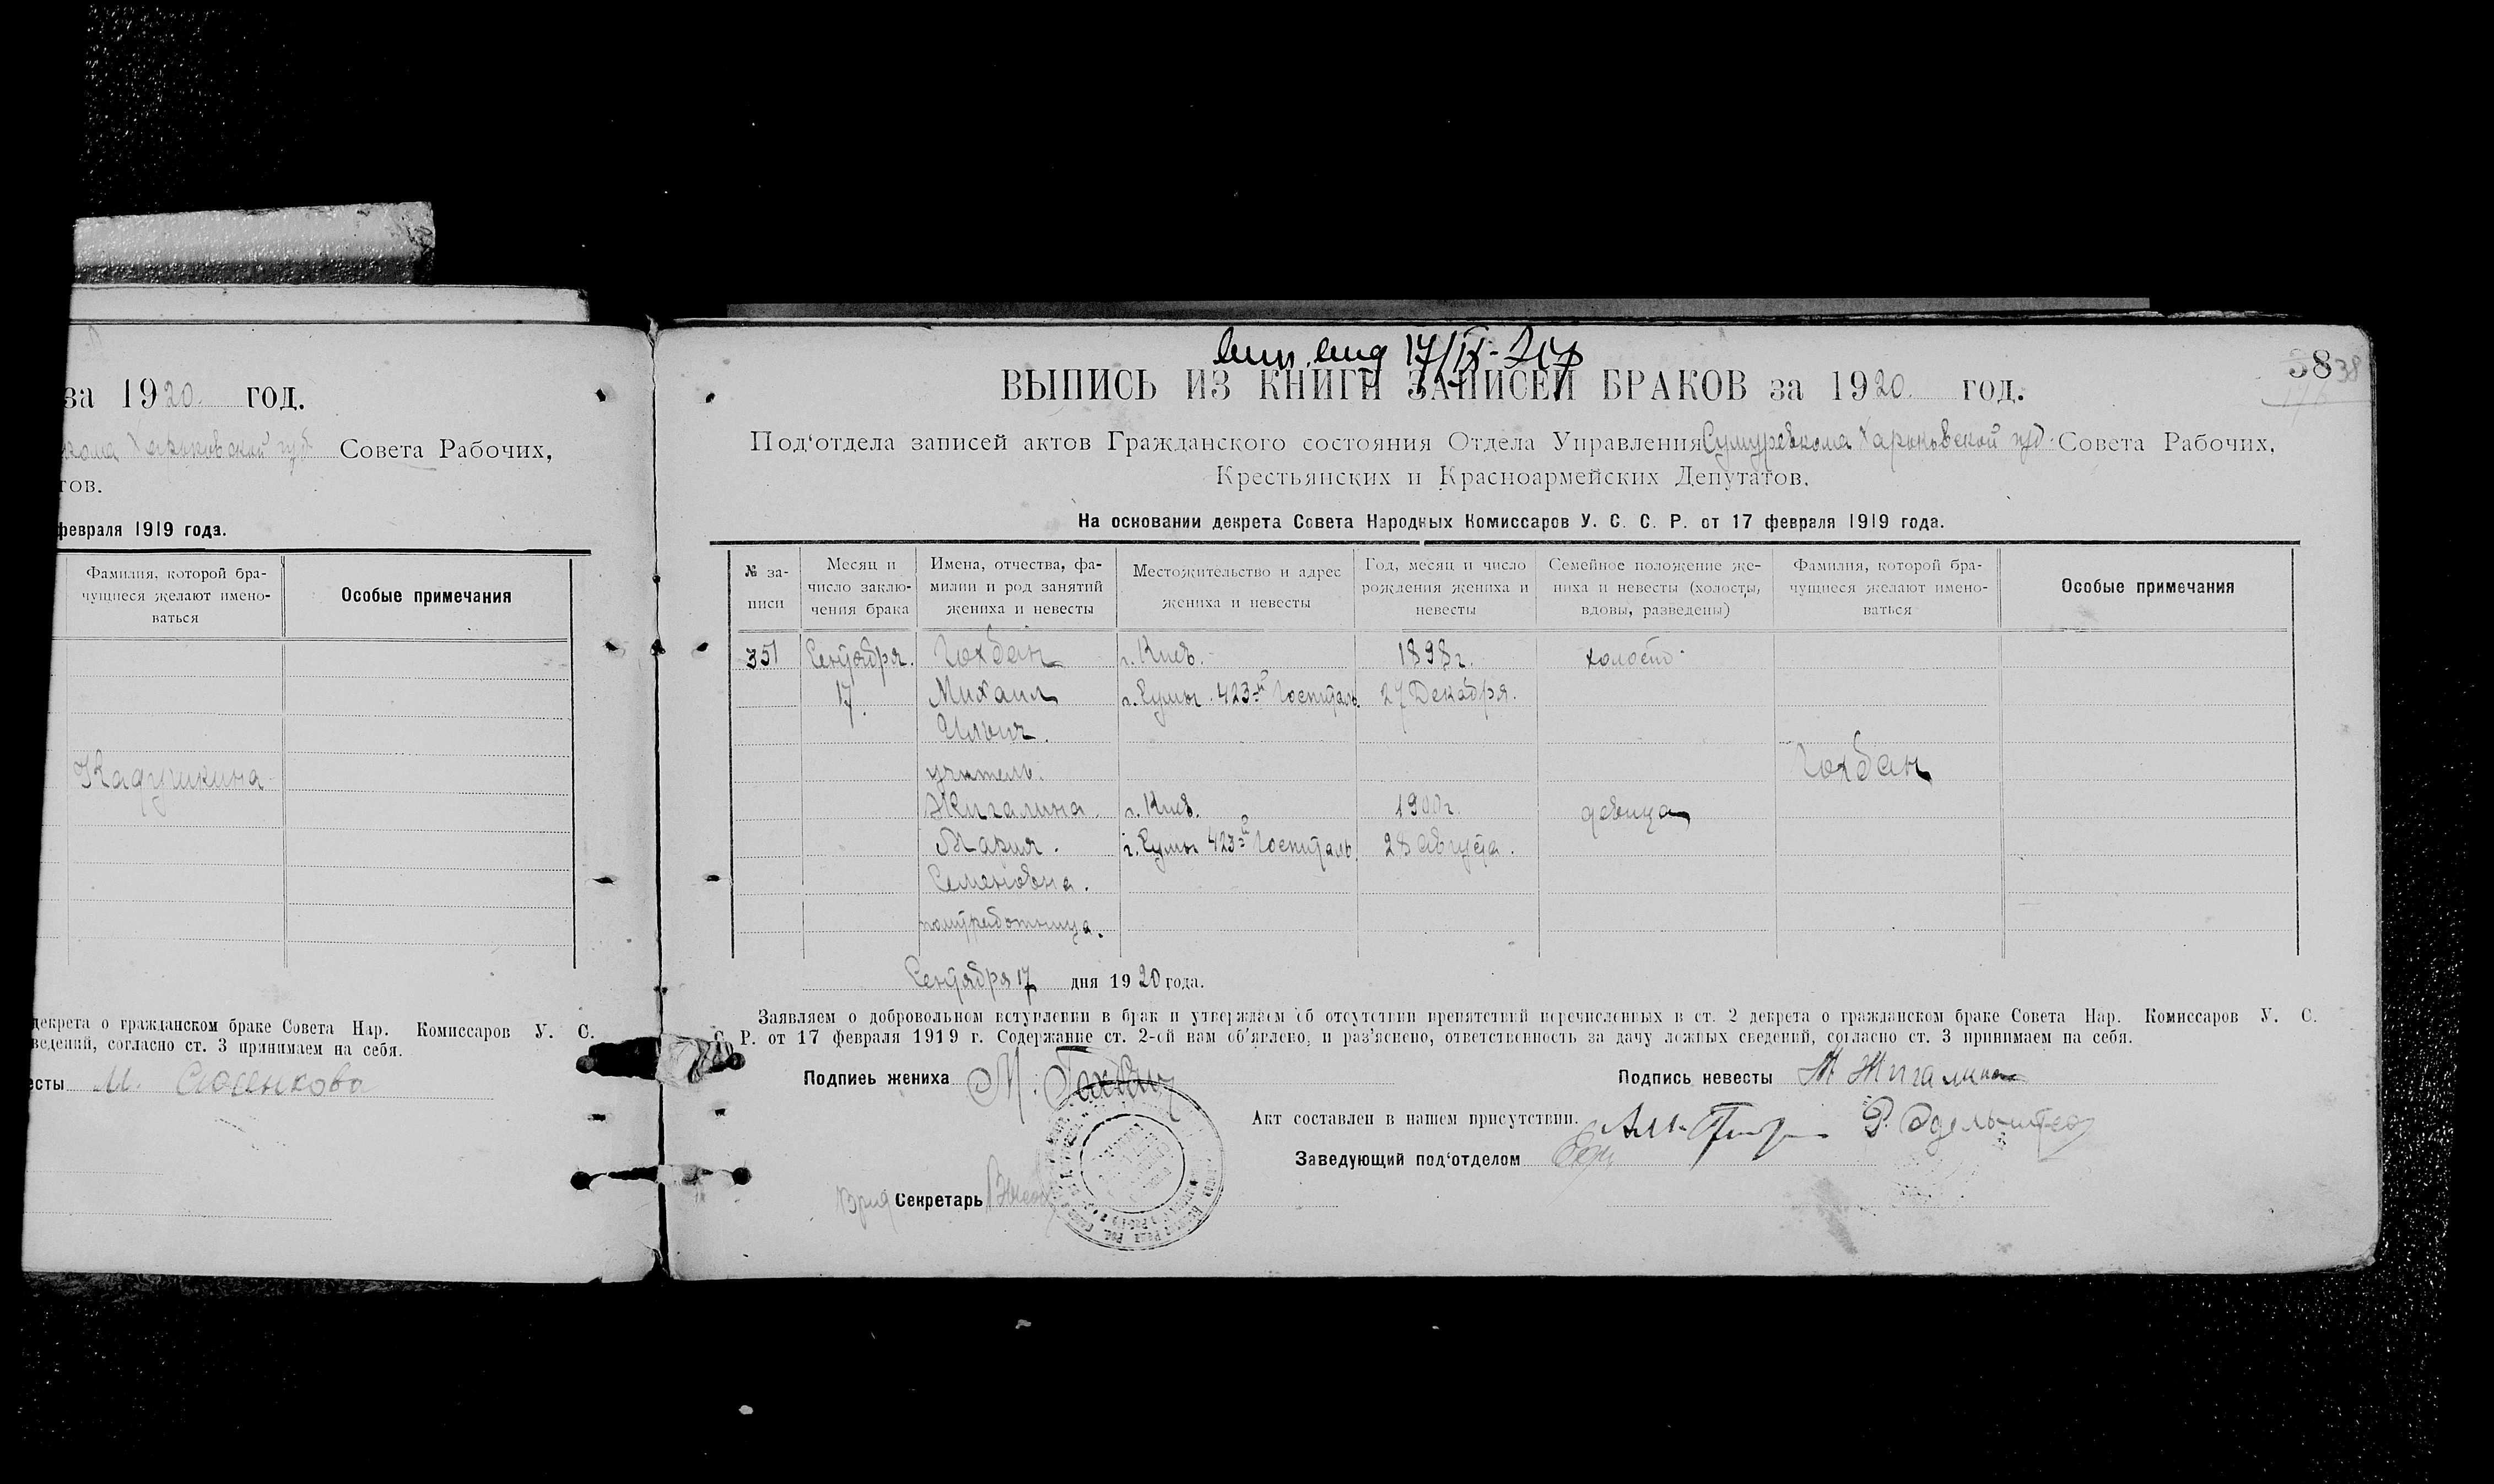 за 1920 год.
кома Харьковской губ. Совета Рабочих,
тов.
февраля 1919 года.
Фамилия, которой бра-
чущиеся желают имено-
ваться
Особые примечания
Кадушкина
декрета о гражданском браке Совета Нар. Комиссаров У. С.
ведений, согласно ст. 3 принимаем на себя.
есты М.
17/IX-
38 38
ВЫПИСЬ ИЗ КНИГИ ЗАПИСЕЙ БРАКОВ за 1920 год.
Под'отдела записей актов Гражданского состояния Отдела Управления Сумуревкома Харьковской губ. Совета Рабочих,
Крестьянских и Красноармейских Депутатов.
На основании декрета Совета Народных Комиссаров У. С. С. Р. от 17 февраля 1919 года.
№ за-
писи
Месяц и
число заклю-
чения брака
Имена, отчества, фа-
милии и род занятий
жениха и невесты
Местожительство и адрес
жениха и невесты
Год, месяц и число
рождения жениха и
невесты
Семейное положение же-
ниха и невесты (холосты,
вдовы, разведены)
Фамилия, которой бра-
чущиеся желают имено-
ваться
Особые примечания
351 Сентября. Гохбан г. Киев. 1898г. холост.
17. Михаил г. Сумы. 423-й Госпиталь. 27 Декабря.
Ильич.
учитель. Гохбан
Жигалина. г. Киев. 1900г. девица
Мария. г. Сумы 423-й Госпиталь. 28 Августа.
Семеновна.
политработница.
Сентября 17 дня 1920 года.
Заявляем о добровольном вступлении в брак и утверждаем об отсутствии препятствий перечисленных в ст. 2 декрета о гражданском браке Совета Нар. Комиссаров У. С.
С. Р. от 17 февраля 1919 г. Содержание ст. 2-ой нам об'явлено, и раз'яснено, ответственность за дачу ложных сведений, согласно ст. 3 принимаем на себя.
Подпиeь жениха М. Гохбан Подпись невесты М Жигалина
Акт составлен в нашем присутствии.
Заведующий под'отделом
Секретарь